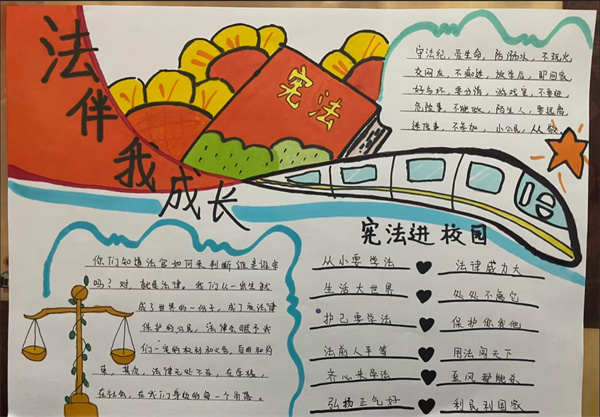 法伴我成长
宪法
守法纪，爱生命，防溺水，不玩火
交网友，不痴迷，放学后，即回家
好与坏，要分清，游戏室，不要进
危险事，不能做，陌生人，要提高
迷信事，不参加，小公民，从
宪法进校园
从小要学法 法律威力大
生活大世界 处处不离它
护己要学法 保护你我他
法前人平等 用法闯天下
齐心来学法
弘扬正气好 利民利国家
你们知道法官如何来判断谁是谁非
吗？对，就是法律。我们从一出生就
成了世界的一份子，成了受法律
保护的公民，法律会赐予我
们一定的权利和义务，自由和约
束，其次，法律无处不在，在学校，
在社会，在我们身边的每一个角落。